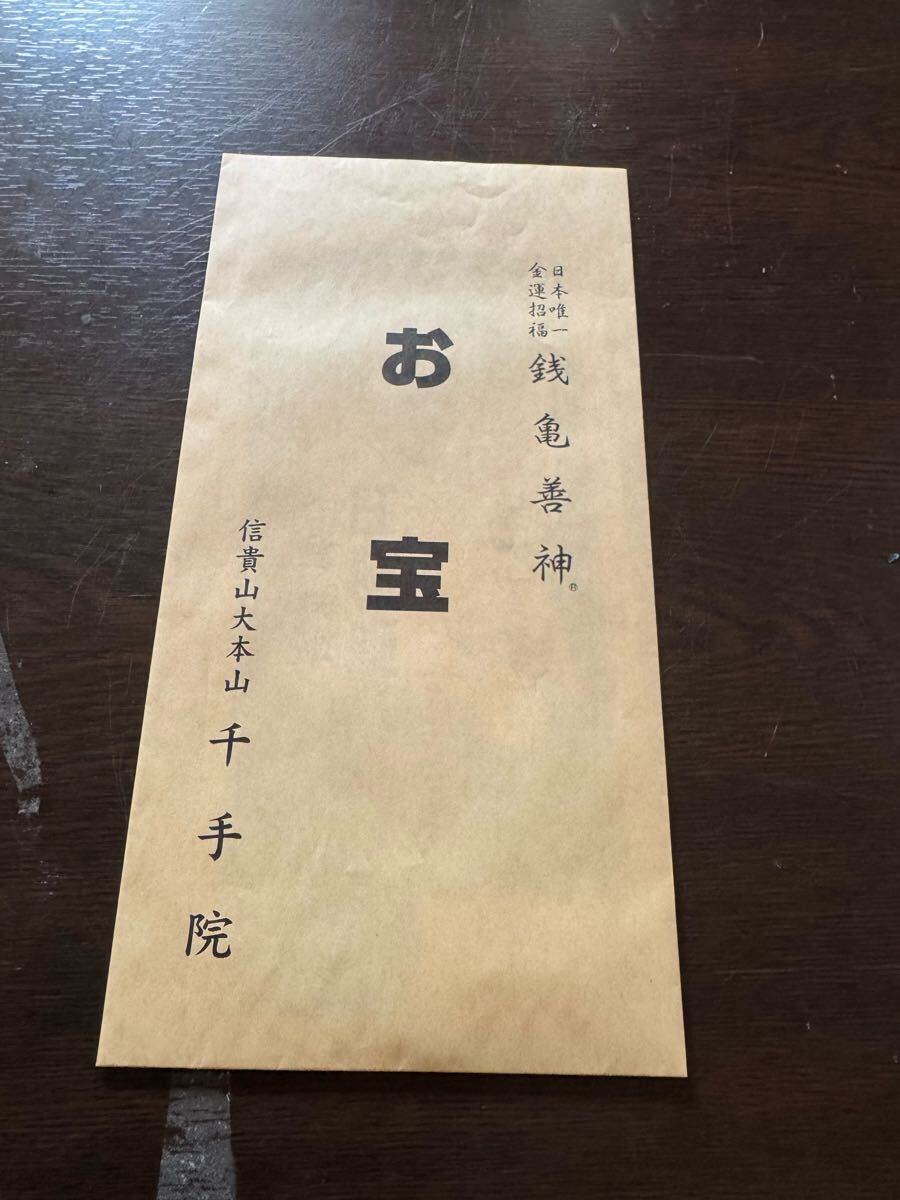 日本唯一
金運招福
銭亀善神®
お宝
信貴山大本山 千手院